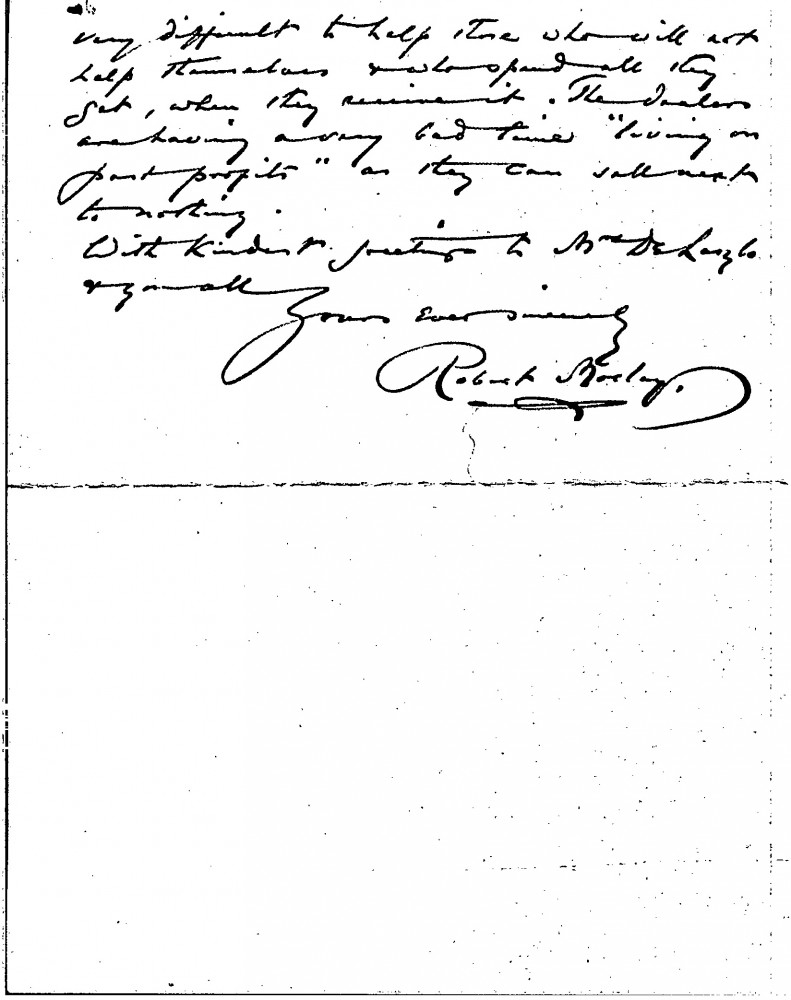 very difficult to help those who will not
help themselves & who spend all they
get, when they receive it. The dealers
are having a very bad time "living on
past profits" as they can sell next
to nothing.
With kindest greetings to Mrs De Laszlo
& you all
Yours ever sincerely
Robert Morley.